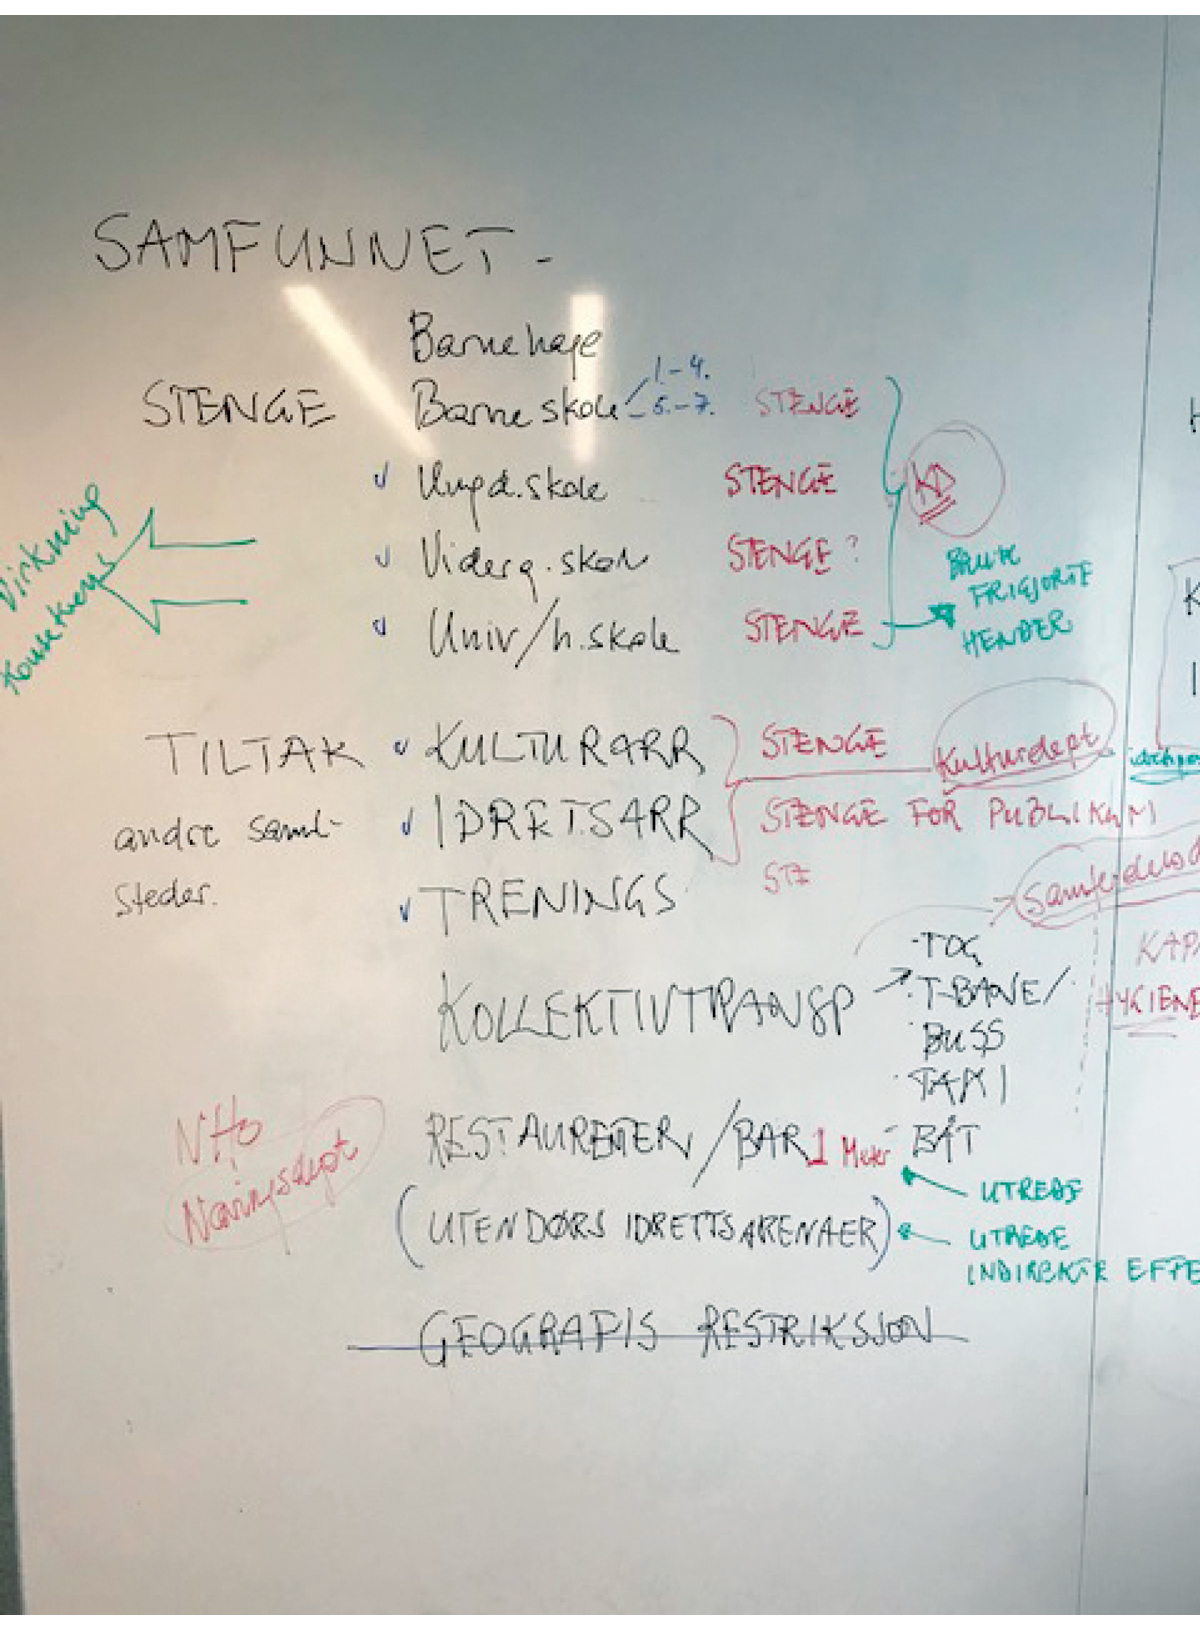 SAMFUNNET -
Barnehage
STENGE Barneskole 1.-4. STENGE
5.-7.
Ungd.skole STENGE KD
Virkning
konsekvens
Viderg.skole STENGE ?
BRUK
FRIGJORTE
HENDER
Univ/h.skole STENGE
TILTAK KULTURARR STENGE Kulturdept
andre saml- IDRETSARR STENGE FOR PUBLIKUM
steder. TRENINGS STE
Samferdelsd
KOLLEKTIVTRANSP · TOG
· T-BANE/
· BUSS
· TAXI
- BÅT
KAPA
HYGIENE
NHO
Næringsdept
RESTAURENTER/BAR 1 Meter
UTREDE
(UTENDØRS IDRETTSARENAER) UTREDE
INDIREKTE EFFE
GEOGRAFIS RESTRIKSJON